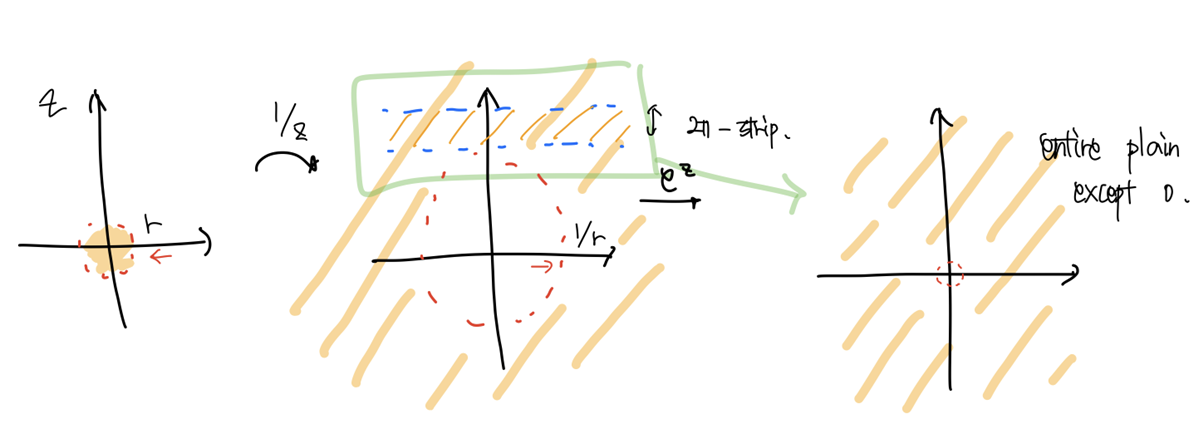 z
r
1/z
1/r
2π-strip.
e^z
entire plain
except 0.